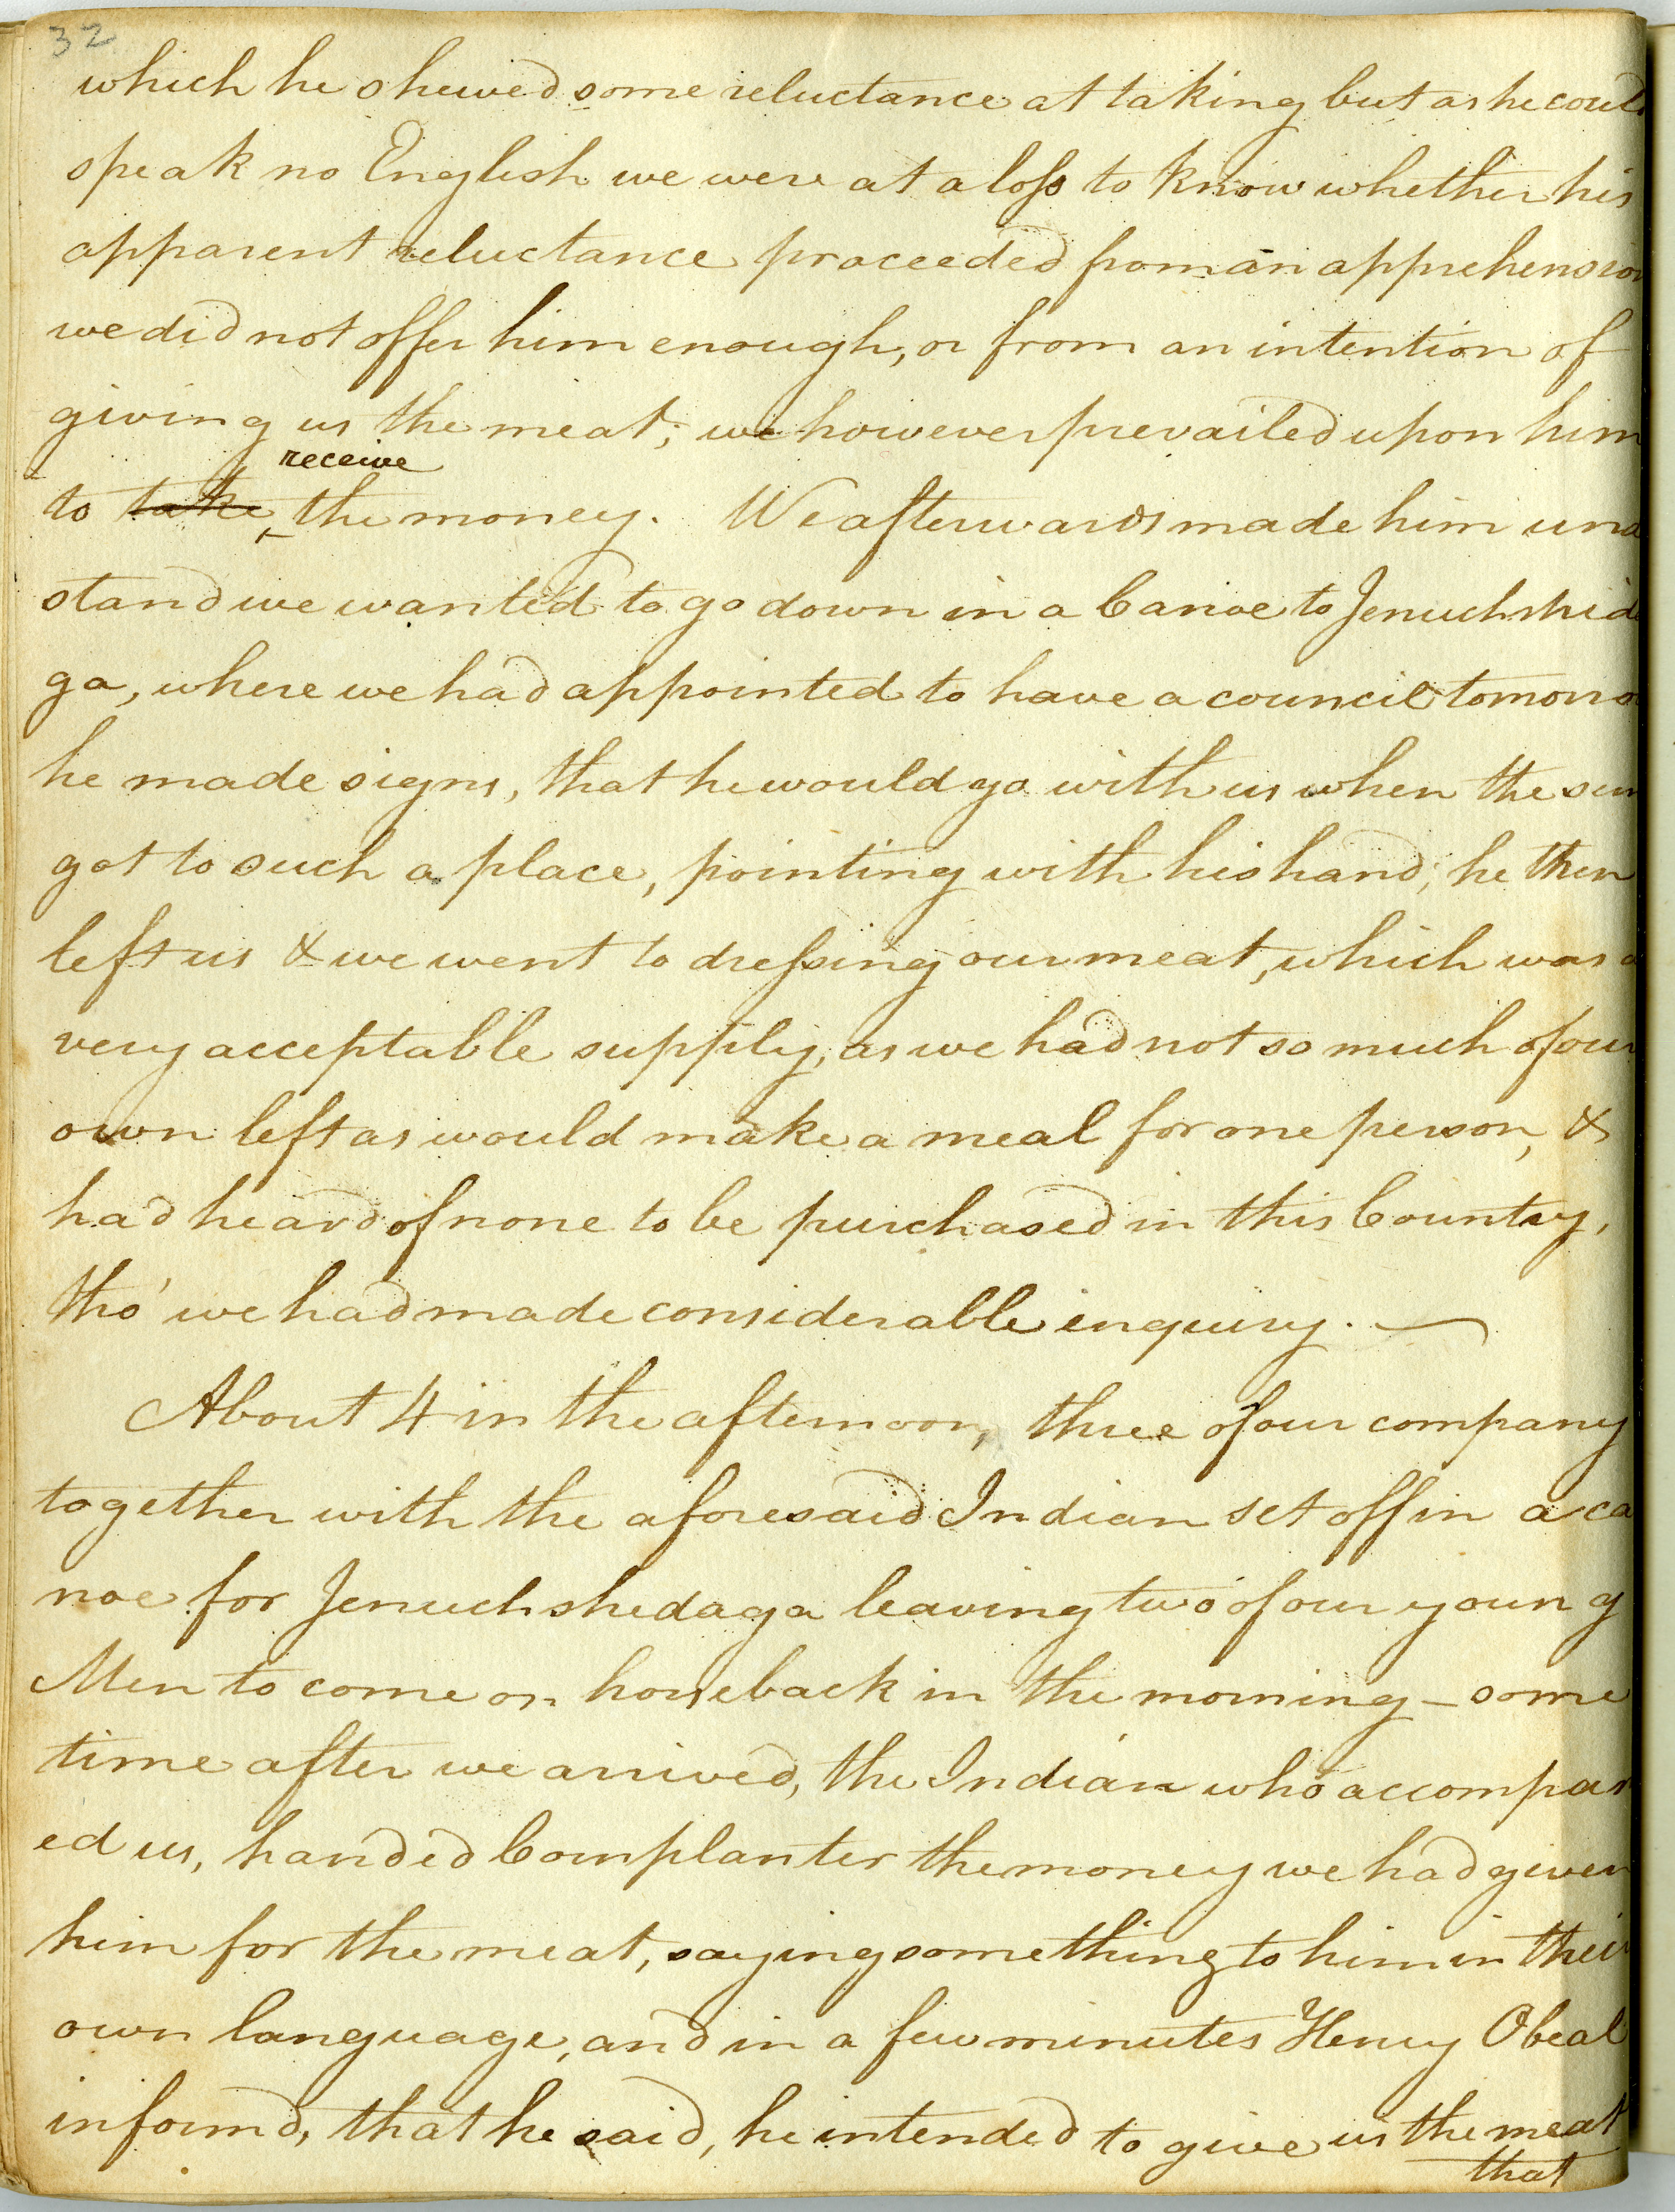 32
which he shewed some reluctance at taking but as he could
speak no English we were at a loss to know whether his
apparent reluctance proceeded from an apprehension
we did not offer him enough, or from an intention of
giving us the meat; we however prevailed upon him
receive
to take the money. We afterwards made him und
stand we wanted to go down in a Canoe to Jenuchshid
ga, where we had appointed to have a council tomorro
he made signs, that he would go with us when the sun
got to such a place, pointing with his hand; he then
left us & we went to dressing our meat, which was a
very acceptable supply, as we had not so much of our
own left as would make a meal for one person, &
had heard of none to be purchased in this Country,
tho' we had made considerable enquiry. —
About 4 in the afternoon, three of our company
together with the aforesaid Indian set off in a ca
noe for Jenuchshedaga leaving two of our young
Men to come on horseback in the morning – some
time after we arrived, the Indian who accompan
ed us, handed Cornplanter the money we had given
him for the meat, saying something to him in their
own language, and in a few minutes Henry Obeal
informd, that he said, he intended to give us the meat
that